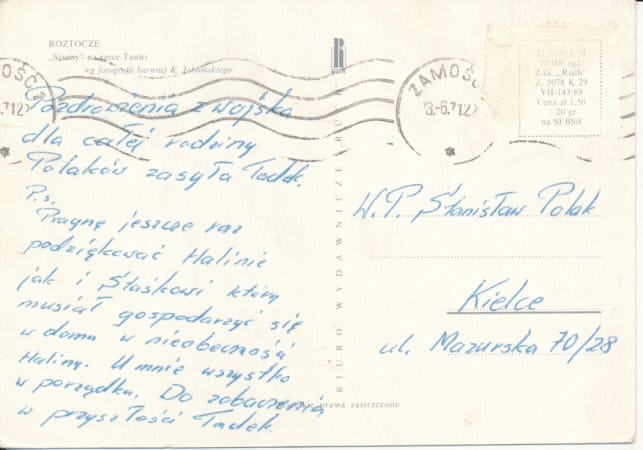 ROZTOCZE
„Szumy” na rzece Tanwi
wg fotografii barwnej K. Jabłońskiego
Pozdrowienia z wojska
dla całej rodziny
Polaków zasyła Tadek.
P.s.
Pragnę jeszcze raz
podziękować Halinie
jak i Staśkowi który
musiał gospodarzyć się
w domu w nieobecność
Haliny. U mnie wszystko
w porządku. Do zobaczenia
w przyszłości Tadek.
BIURO WYDAWNICZE RUCH
prawa zastrzeżone
ZAMOŚĆ
-6.71.
ZAMOŚĆ
3.-6.71.
Z.G. „Ruch”
Z. 5078 K 29
VII-143/69
Cena zł 1,50
+ 20 gr
na SFBSiI
W.P. Stanisław Polak
Kielce
ul. Mazurska 70/28